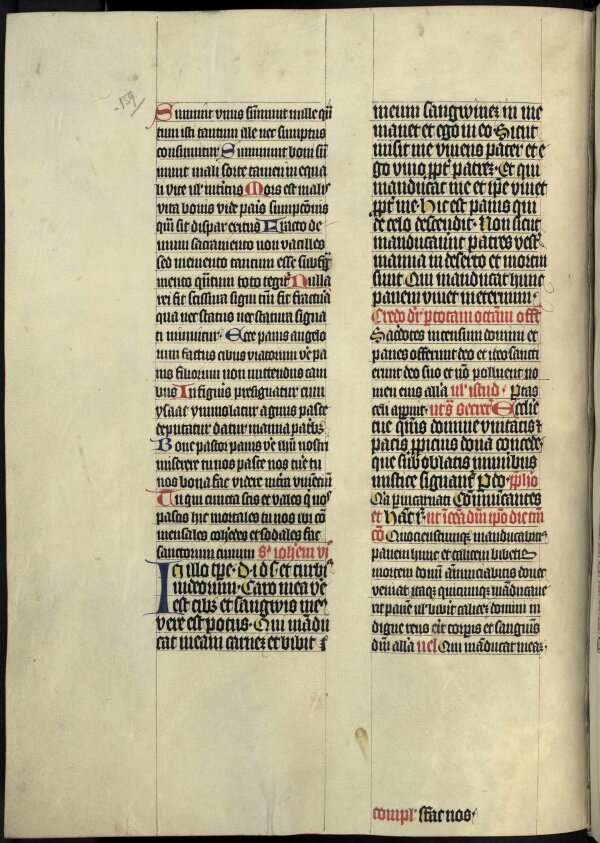 159
Sumunt boni sumunt mali sorte tamen inequa
Mors est malis
vita bonis vide paris sumptionis
quam sit dispar exitus Fracto de
mum sacramento non vacilles
sed memento tantum esse sub frag
mento quantum toto tegitur Nulla
rei fit scissura signi tantum fit fractura
qua nec status nec statura signa
ti minuitur. Ecce panis angelo
rum factus cibus viatorum vere pa
nis filiorum non mittendus cani
bus In figuris presignatur cum
ysaac ymmolatur agnus pasce
deputatur datur manna patribus
Bone pastor panis vere ihesu nostri
miserere tu nos pasce nos tuere tu
nos bona fac videre
Tu qui cuncta scis et vales qui nos
pascis hic mortales tu nos ibi com
mensales coheredes et sodales fac
sanctorum civium
In illo tpe. d. ihs. et turbis
iudeorum. Caro mea ve
re est cibus et sangwis meus
vere est potus. Qui mandu
cat meam carnem et bibit
meum sangwinem in me
manet et ego in eo Sicut
misit me vivens pater et e
go vivo ppt patrem. Et qui
manducat me et ipse vivet
ppt me. Hic est panis qui
de celo descendit. Non sicut
manducaverunt patres vestri
manna in deserto et mortui
sunt Qui manducat hunc
panem vivet in eternum.
Credo dr p totam octavam off
Sacerdotes incensum domini et
panes offerunt deo et ideo sancti
erunt deo suo et non polluent no
men eius alla vel istud. Portas
celi apperuit. Secreta Ecclesie
tue quesumus domine unitatis et
pacis propicius dona concede.
que sub oblatis muneribus
mistice signantur. Per do. prefatio
Quia per incarnati Communicantes
et Hanc igitur
Quocienscumque manducabitis
panem hunc et calicem bibetis
mortem domini annunciabitis donec
veniat itaque quicumque manducave
rit panem vel biberit calicem domini in
digne reus erit corporis et sanguinis
domini alla vel Qui manducat meam.
compl. Fac nos.